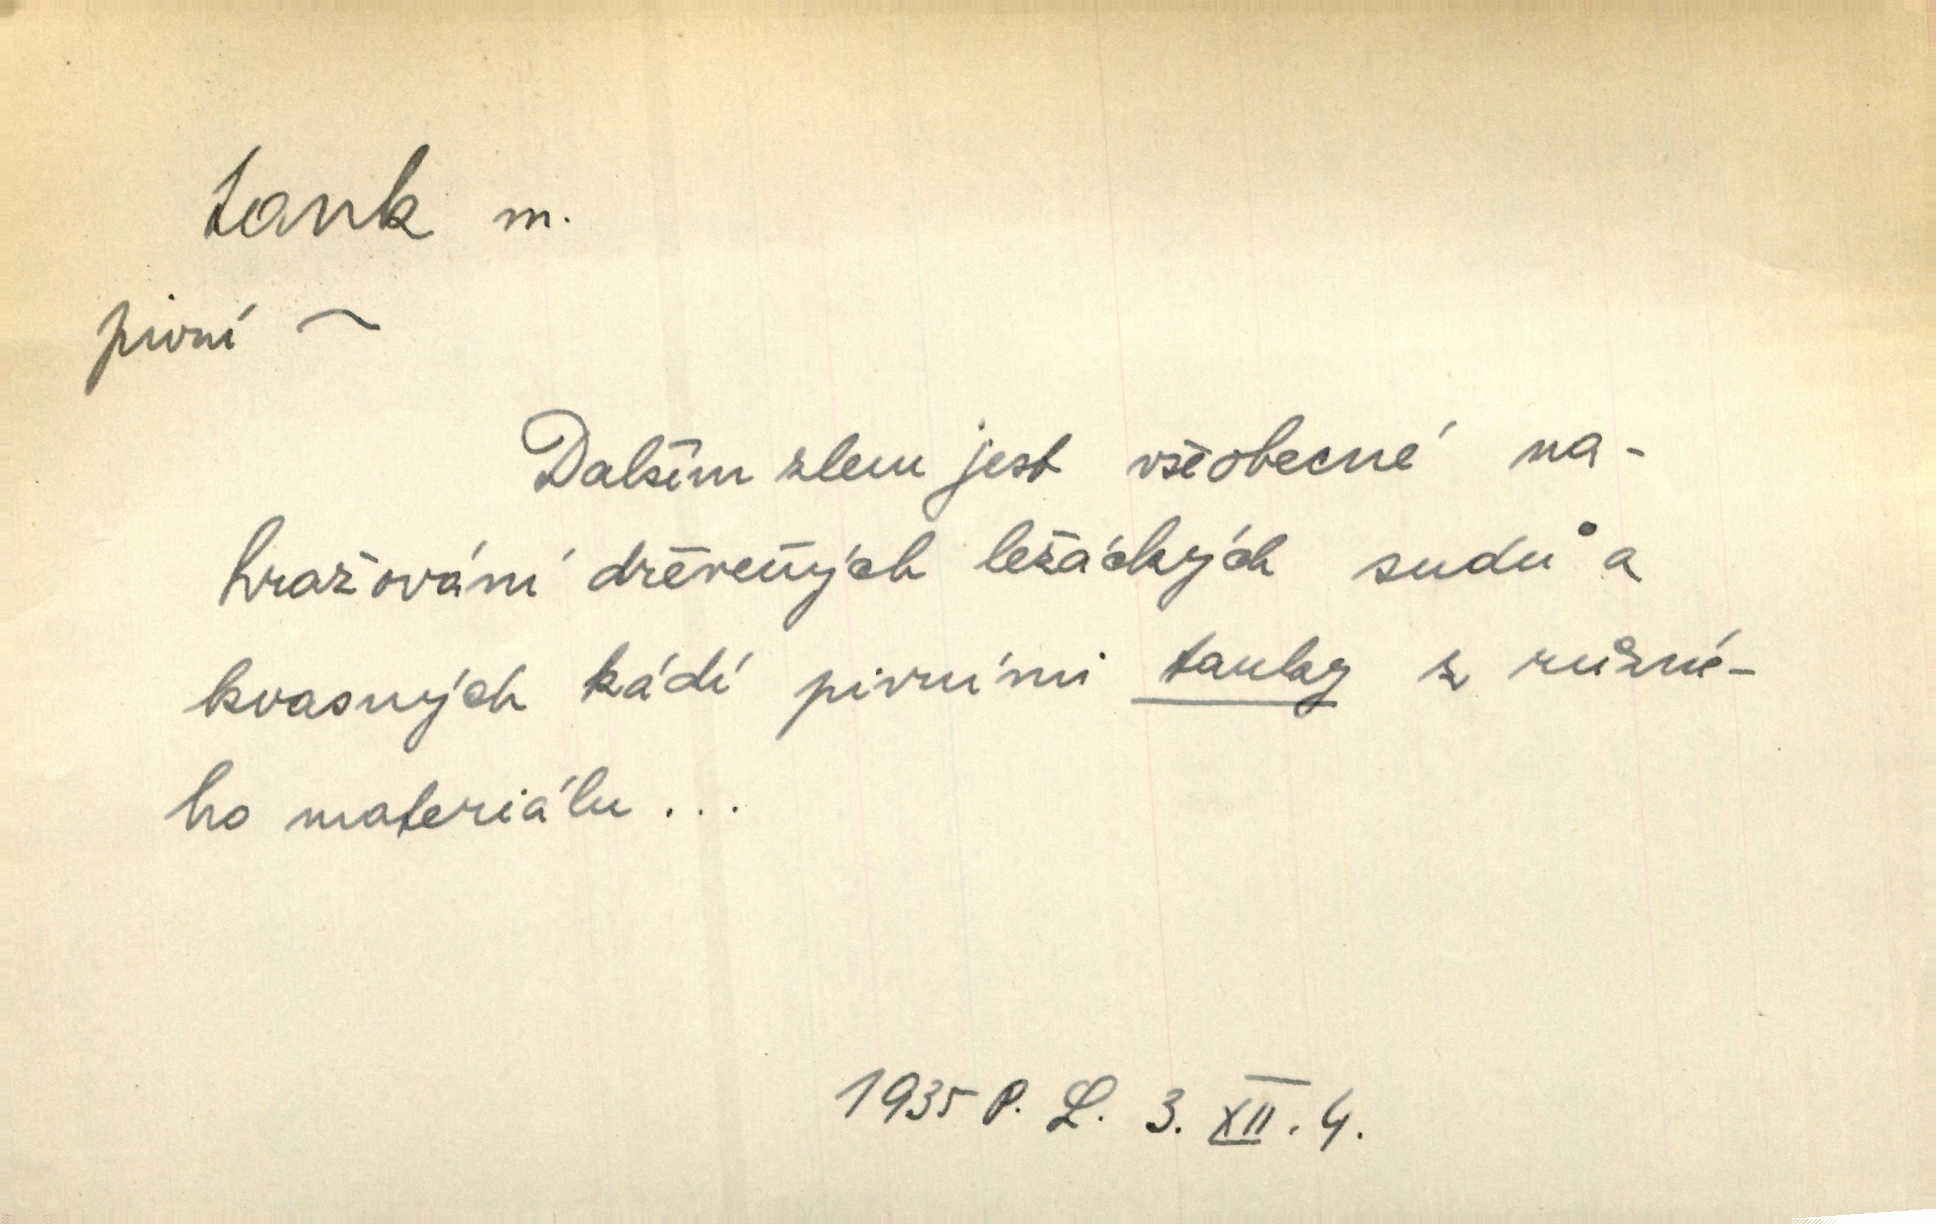 tank m.
pivní ~
Dalším zlem jest všeobecné na-
hražování dřěvených ležáckých sudů a
kvasných kádí pivními tanky z různé-
ho materiálu...
1935 P. L. 3. XII. 4.